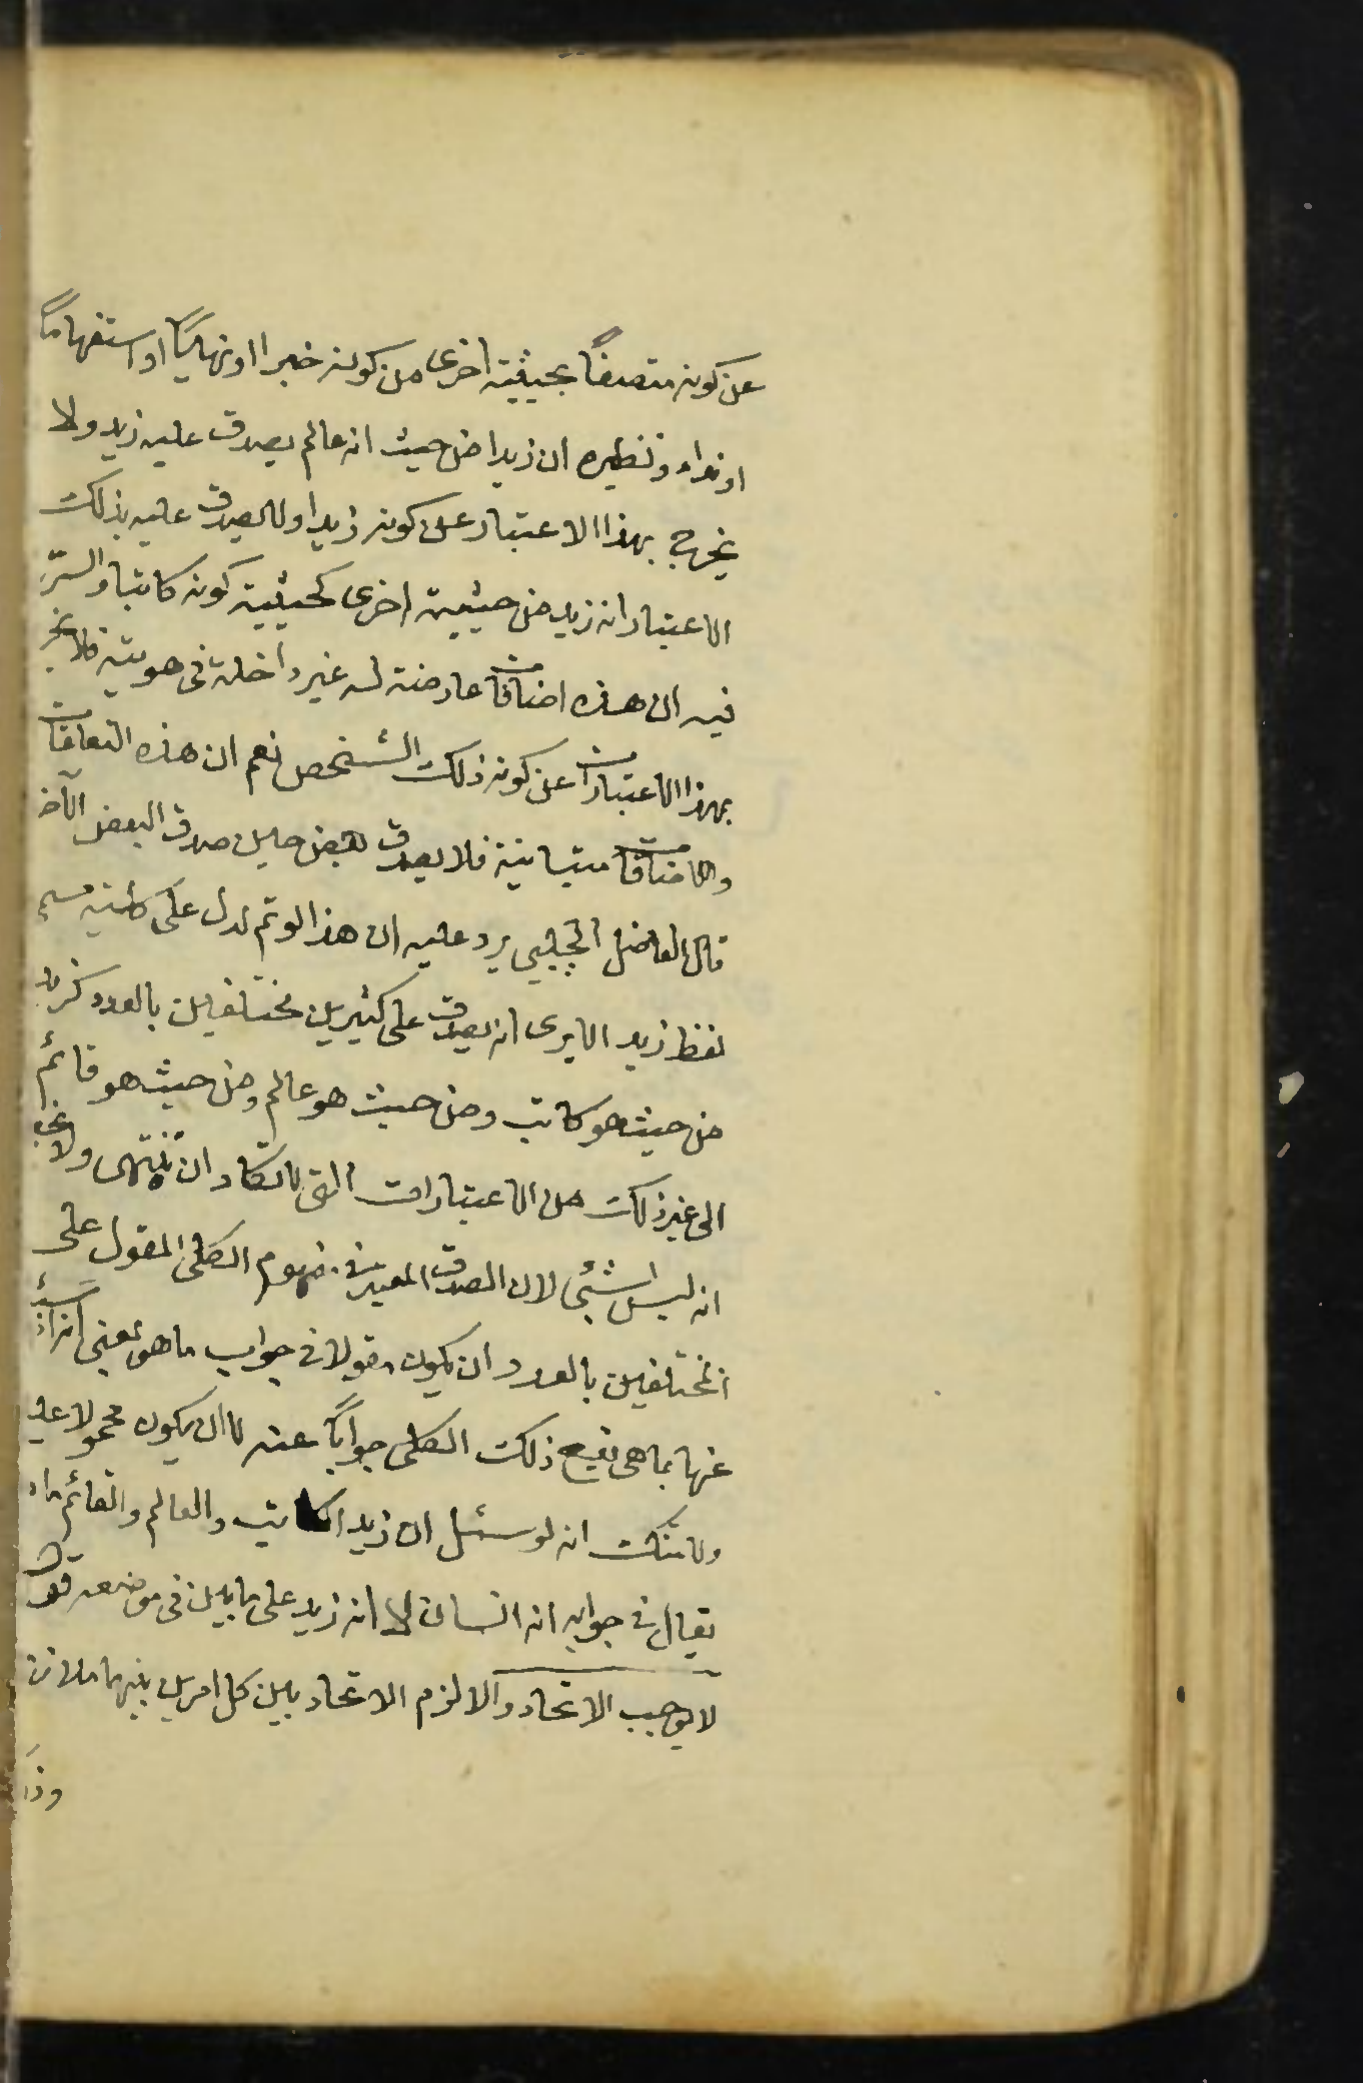 عن كونه متصفاً بحيثية اخرى من كونه خبرا او نهايياً او استفهاماً
او نداء ونظيره ان زيدا من حيث انه عالم يصدق عليه زيد ولا
يخرج بهذا الاعتبار عن كونه زيدا ولا يصدق عليه بذلك
الاعتبار انه زيد من حيثية اخرى كحيثية كونه كاتبا والسرّ
فيه ان هذه اضافات عارضة له غير داخلة فى هويته فلا يخر
بهذا الاعتبارات عن كونه ذلك الشخص نعم ان هذه التعلقات
والاضافات متباينة فلا يصدق بعض حين صدق البعض الآخر
قال الفاضل الچلبي يرد عليه ان هذا لو تم لدل على كلية مسمى
لفظ زيد الا يرى انه يصدق على كثيرين مختلفين بالعدد كزيد
من حيث هو كاتب ومن حيث هو عالم ومن حيث هو قائم
الى غير ذلك من الاعتبارات التى لا تكاد ان تنتهى ولا يخفى
انه ليس بشئ لان الصدق المعتبر فى مفهوم الكلى المقول على
المختلفين بالعدد ان يكون مقولا فى جواب ما هو بمعنى انه اذا سئل
عنها بما هى يقع ذلك الكلى جواباً عنه لا ان يكون محمولا عليه
ولا شك انه لو سئل ان زيدا الكاتب والعالم والقائم ما هو
يقال فى جوابه انه انسان لا انه زيد على ما بين فى موضعه قوله
لا يوجب الاتحاد والا لزم الاتحاد بين كل امرين بينهما ملازمة